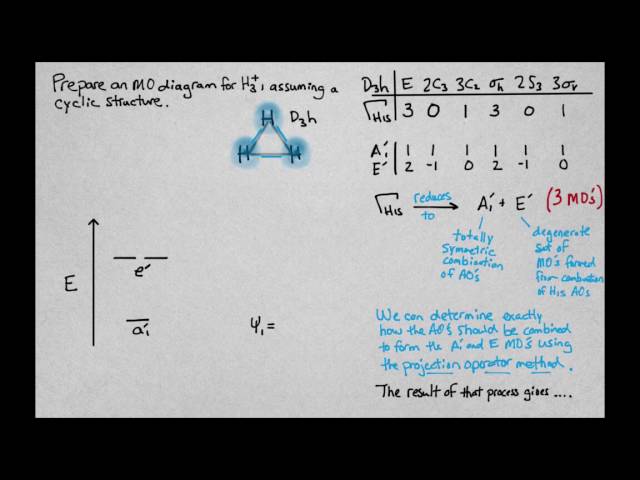 Prepare an MO diagram for H₃⁺, assuming a
cyclic structure.
H D₃h
H H
E
e′
a₁′
ψ₁ =
D₃h E 2C₃ 3C₂ σₕ 2S₃ 3σᵥ
Γ H1s 3 0 1 3 0 1
A₁′ 1 1 1 1 1 1
E′ 2 -1 0 2 -1 0
Γ H1s reduces to → A₁′ + E′ (3 MO's)
totally
symmetric
combination
of AO's
degenerate
set of
MO's formed
from combination
of H1s AOs
We can determine exactly
how the AO's should be combined
to form the A₁′ and E MO's using
the projection operator method.
The result of that process gives ....